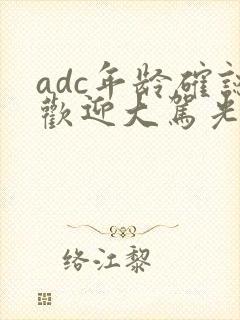 adc年龄確認
歡迎大駕光
络江黎